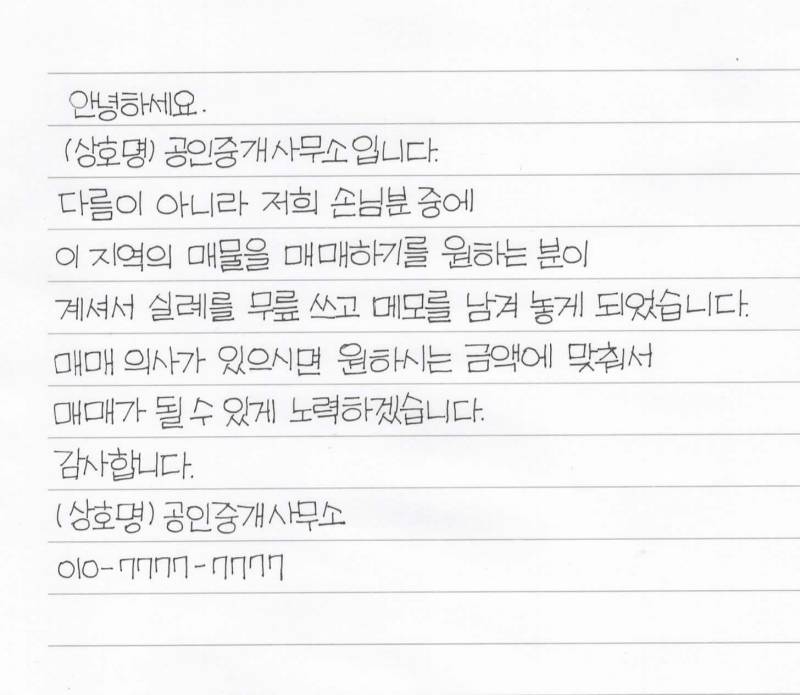 안녕하세요.
(상호명) 공인중개사무소입니다.
다름이 아니라 저희 손님분 중에
이 지역의 매물을 매매하기를 원하는 분이
계셔서 실례를 무릎 쓰고 메모를 남겨 놓게 되었습니다.
매매 의사가 있으시면 원하시는 금액에 맞춰서
매매가 될 수 있게 노력하겠습니다.
감사합니다.
(상호명) 공인중개사무소
010-7777-7777